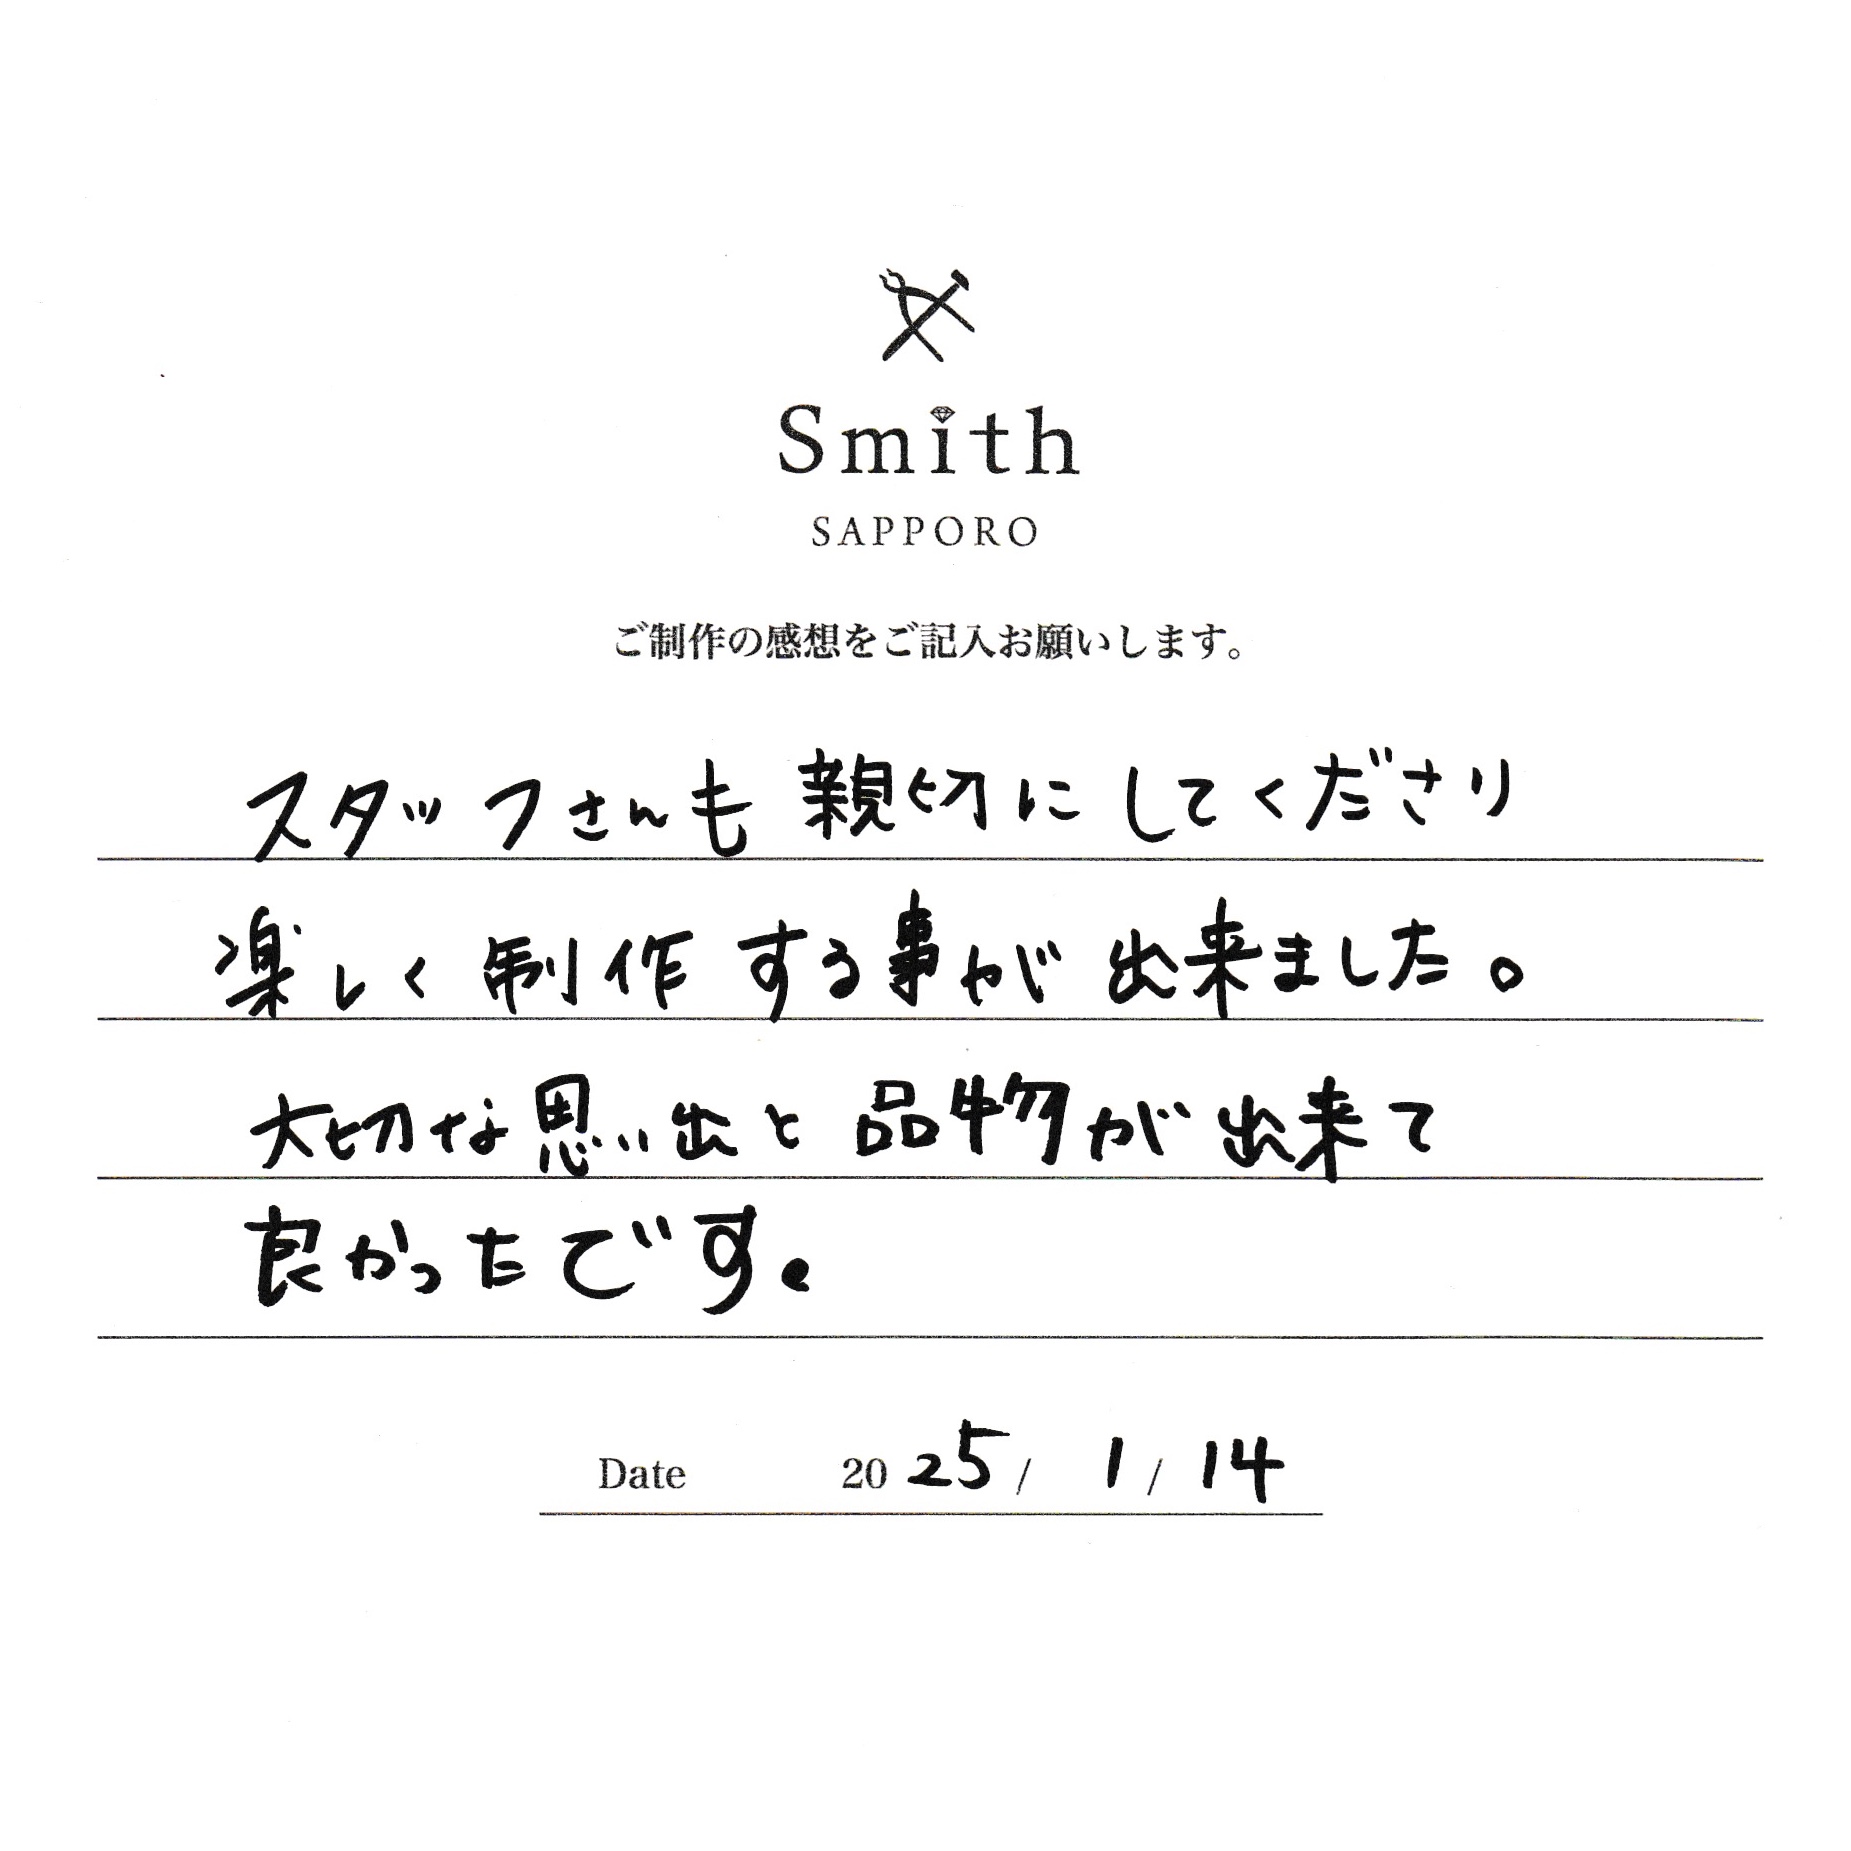 Smith
SAPPORO
ご制作の感想をご記入お願いします。
スタッフさんも親切にしてくださり
楽しく制作する事が出来ました。
大切な思い出と品物が出来て
良かったです。
Date 2025/ 1 / 14